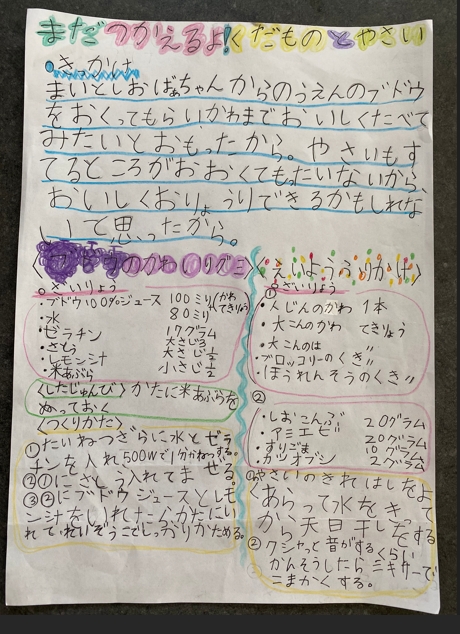 まだつかえるよ!くだものとやさい
・きっかけ
まいとしおばあちゃんからのうえんのブドウ
をおくってもらいかわまでおいしくたべて
みたいとおもったから。やさいもす
てるところがおおくてもったいないから、
おいしくおりょうりできるかもしれな
いって思ったから。
のかわ入りグミ
・ざいりょう
・ブドウ100%ジュース 100ミリ(かわてきりょう)
・水 80ミリ
・ゼラチン 17グラム
・さとう 大さじ3
・レモン汁 大さじ½
・米あぶら 小さじ½
〈したじゅんび〉かたに米あぶらを
ぬっておく
〈つくりかた〉
①たいねつざらに水とゼラ
チンを入れ500Wで1分かねつする。
②①にさとう入れてまぜる。
③②にブドウジュースとレモ
ン汁をいれたらかたにい
れてれいぞうこでしっかりかためる。
〈えいようふりかけ〉
・ざいりょう
①
・人じんのかわ 1本
・大こんのかわ てきりょう
・大こんのは 〃
・ブロッコリーのくき 〃
・ほうれんそうのくき 〃
②
・しおこんぶ 20グラム
・アミエビ 20グラム
・すりごま 10グラム
・カツオブシ 2グラム
①やさいのきれはしをよ
くあらって水をきっ
てから天日干しをする
②クシャっと音がするくらい
かんそうしたらミキサーで
こまかくする。